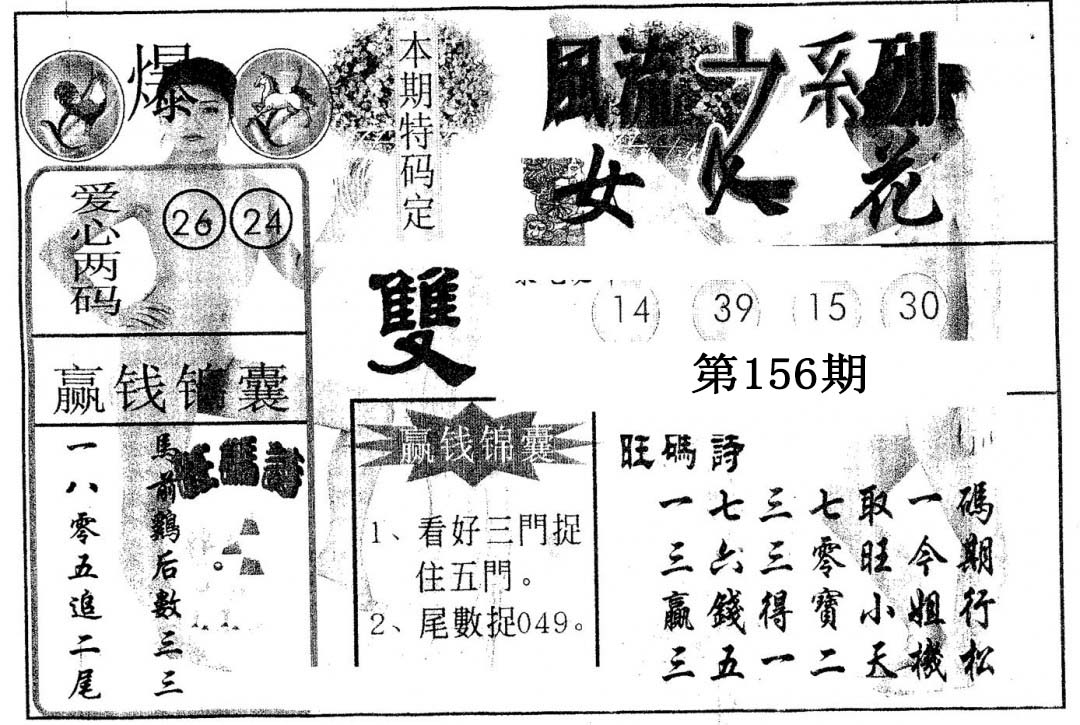 爆
本期特码定
雙
風流
系列
女
花
爱心两码
26 24
14 39 15 30
第156期
赢钱锦囊
旺碼詩
馬前鷄后數三三
一八零五追二尾
赢钱锦囊
1、看好三門捉
住五門。
2、尾數捉049。
旺碼詩
碼期行松
一今姐機
取旺小天
七零寶二
三三得一
七六錢五
一三贏三